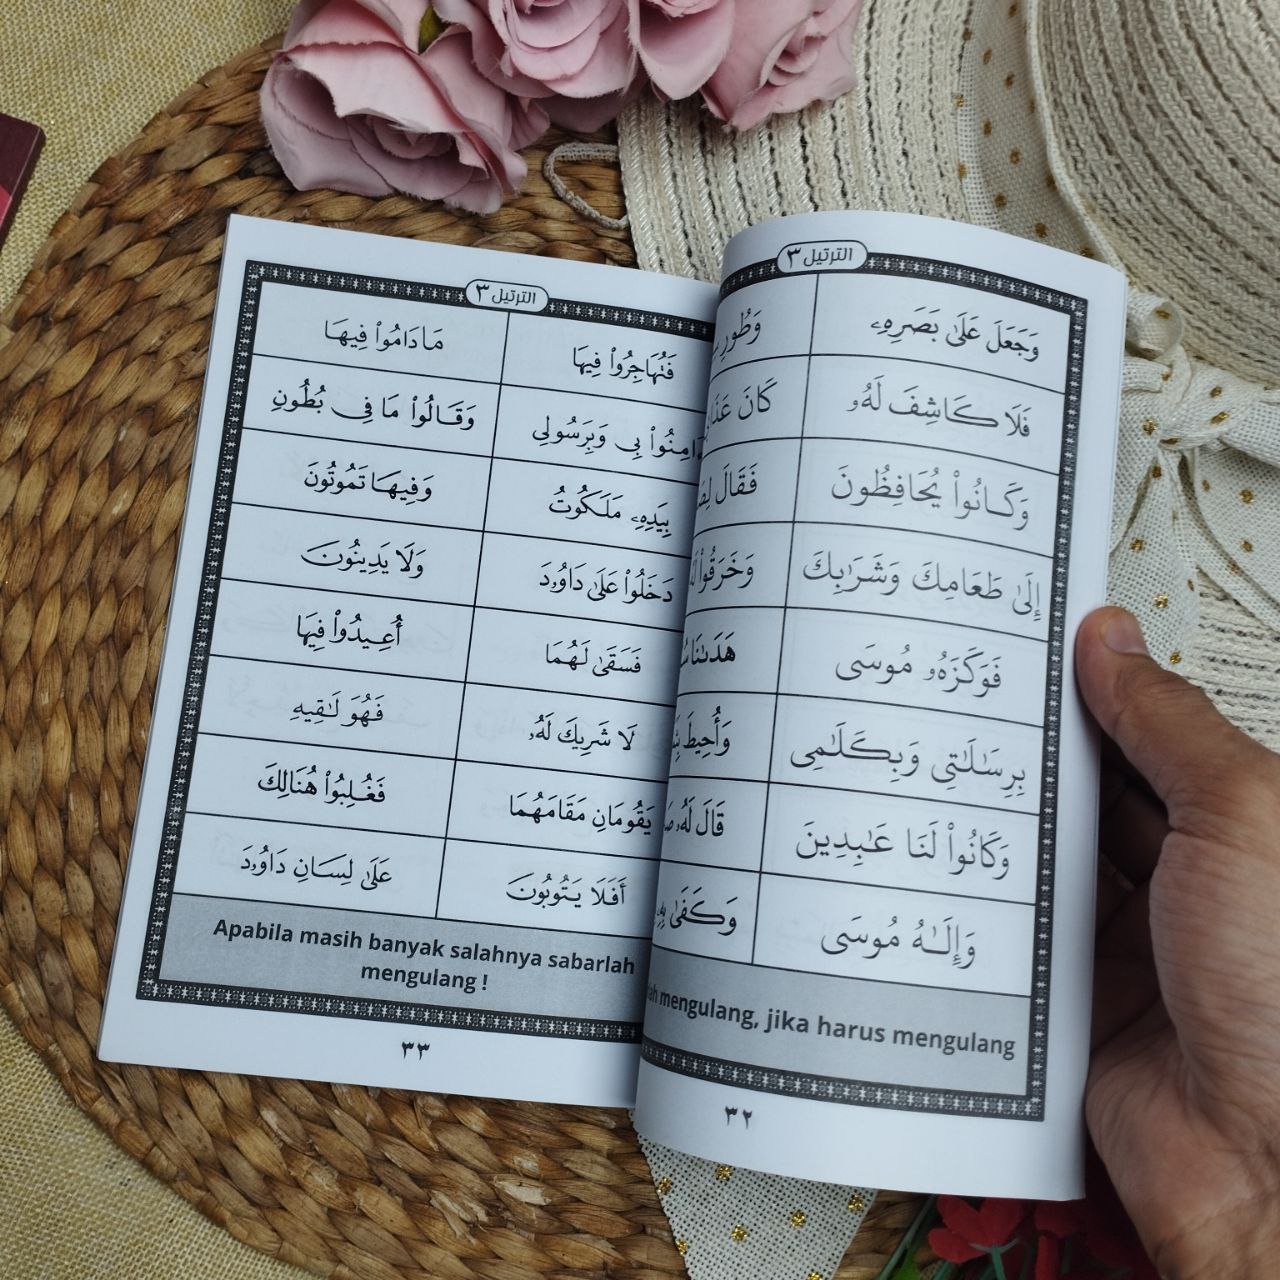 الترتيل ٣
وَجَعَلَ عَلَىٰ بَصَرِهِۦ وَطُورِ
فَلَا كَاشِفَ لَهُۥ كَانَ
وَكَانُوا۟ يُحَافِظُونَ فَقَالَ
إِلَىٰ طَعَامِكَ وَشَرَابِكَ وَخَرَقُوا۟
فَوَكَزَهُۥ مُوسَى هَدَىٰنَا
بِرِسَٰلَٰتِى وَبِكَلَٰمِى وَأُحِيطَ
وَكَانُوا۟ لَنَا عَٰبِدِينَ قَالَ لَهُۥ
وَإِلَٰهُ مُوسَى وَكَفَىٰ
mengulang, jika harus mengulang
٣٢
الترتيل ٣
فَتُهَاجِرُوا۟ فِيهَا مَا دَامُوا۟ فِيهَا
بِى وَبِرَسُولِى وَقَالُوا۟ مَا فِى بُطُونِ
بِيَدِهِۦ مَلَكُوتُ وَفِيهَا تَمُوتُونَ
دَخَلُوا۟ عَلَىٰ دَاوُۥدَ وَلَا يَدِينُونَ
فَسَقَىٰ لَهُمَا أُعِيدُوا۟ فِيهَا
لَا شَرِيكَ لَهُۥ فَهُوَ لَٰقِيهِ
يَقُومَانِ مَقَامَهُمَا فَغُلِبُوا۟ هُنَالِكَ
أَفَلَا يَتُوبُونَ عَلَىٰ لِسَانِ دَاوُۥدَ
Apabila masih banyak salahnya sabarlah
mengulang !
٣٣